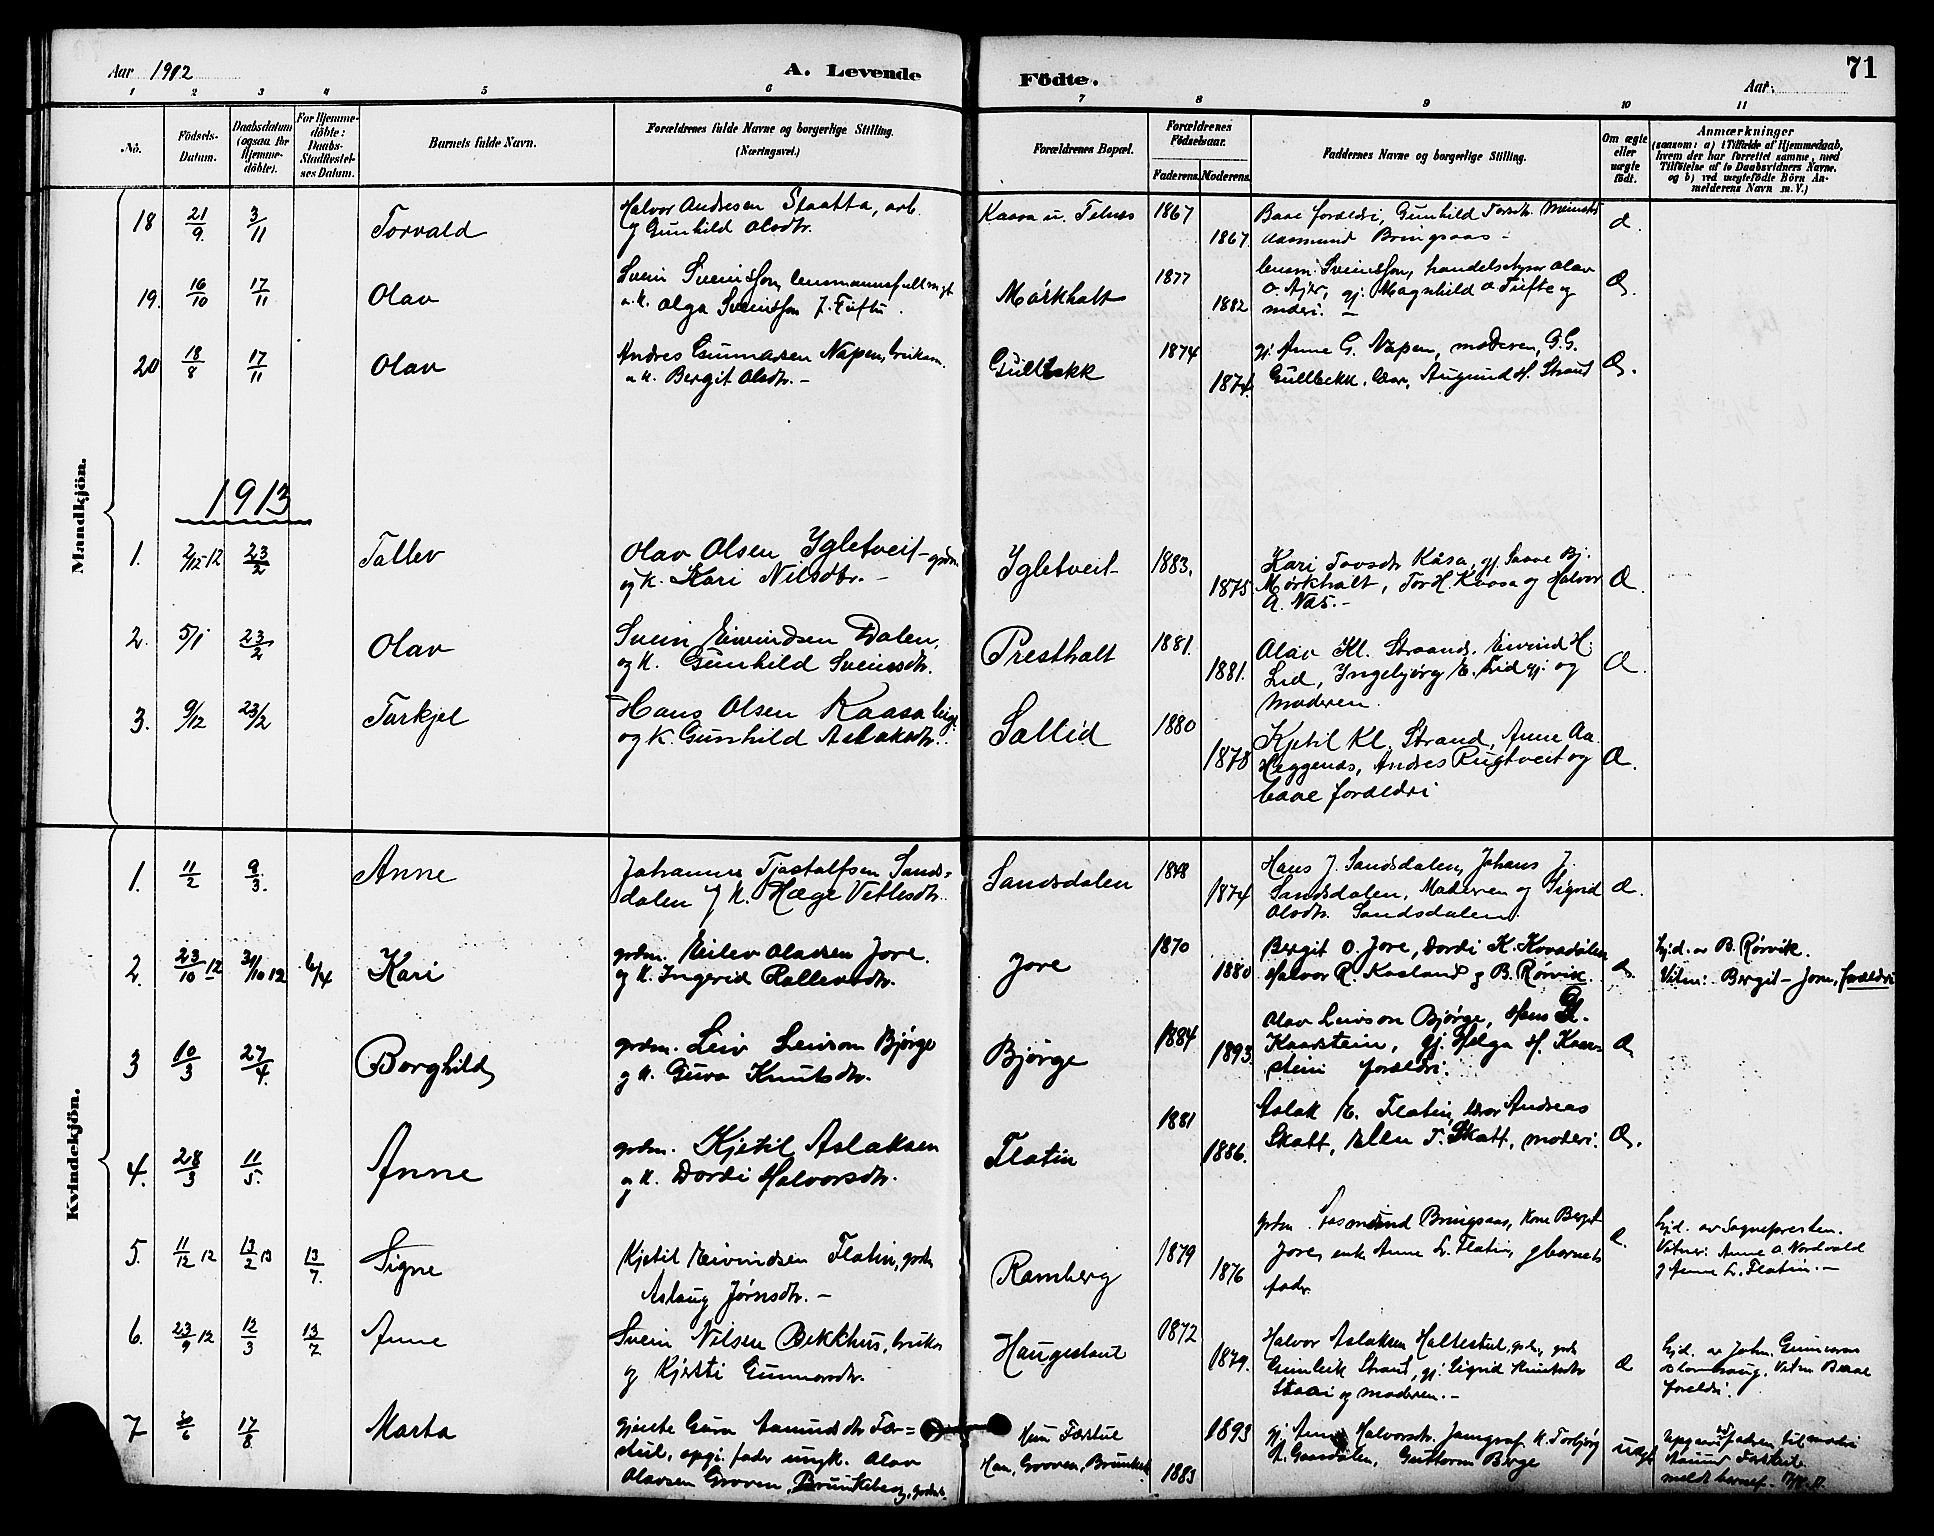 Aar 1912
A. Levende Födte.
Aar
71
1 2 3 4 5 6 7 8 9 10 11
No.
Födsels-Datum.
Daabsdatum (ogsaa for Hjemme-döbte).
For Hjemme-döbte: Daabs-Stadfæstel-ses Datum.
Barnets fulde Navn.
Forældrenes fulde Navne og borgerlige Stilling. (Næringsvei.)
Forældrenes Bopæl.
Forældrenes Födselsaar.
Faderens. Moderens.
Faddernes Navne og borgerlige Stilling.
Om ægte eller uægte födt.
Anmærkninger (saasom: a) i Tilfælde af Hjemmedaab, hvem der har forrettet samme, med Tilföielse af to Daabsvidners Navne, og b) ved uægtefödte Börn An-melderens Navn m. V.)
Mandkjön.
18 21/9. 3/11 Torvald
Halvor Andresen Staatta, arb.
og Gunhild Olsdtr.
Kaasa u. Telnes 1867 1867
Baae foreldri, Gunhild Torsdtr.
Aasmund Bringsaas - Æ.
19. 16/10 17/11 Olav
Svein Sveinsson, lensmannsfullmegt
o.k. Olga Sveinsson f. Tufte.
Mørkhalt 1877 1882
lensm. Sveinsson, handelsstyrer Olav
O. , gj. Magnhild O Tufte og
moderi. - Æ.
20 18/8 17/11 Olav
Andres Gunnarsen Napen, bruksm.
o.k. Bergit Olsdtr. -
Gullbekk 1874 1874.
gj. Anne G. Napen, moderen, G.G.
Gullbekk, lær. Augund H. Strand Æ.
1913
1. 2/12-12 23/2 Tallev
Olav Olsen Igletveit - grdm.
og k. Kari Nilsdtr. -
Igletveit 1883. 1875
Kari Tovsdtr Kåsa, gj. Saave Bj.
Mørkhalt, Tor H. Kaasa og Halvor
A. Nas. - Æ.
2. 5/1 23/2 Olav
Svein Eivindsen Dalen,
og k. Gunhild Sveinsdtr.
Presthalt 1881. 1881.
Olav Kl. Straand, Eivind H.
Lid, Ingebjørg E. Lid gj. og
Moderen. Æ.
3. 9/12 23/2 Tarkjel
Hans Olsen Kaasa leigl.
og k. Gunhild Aslaksdtr.
Sallid 1880 1878
Kjetil Kl. Strand, Anne Aa.
Heggenes, Andres Rugtveit og
baae foreldri Æ.
Kvindekjön.
1. 11/2 9/3. Anne
Johannes Tjostolfsen Sands-
dalen og k. Hæge Vetlesdtr.
Sandsdalen 1874
Hans J. Sandsdalen, Johans J.
Sandsdalen, Moderen og Sigrid
Olsdtr. Sandsdalen. Æ.
2. 23/10 12 31/10 12 6/4 Kari
grdm. Eilev Olavsen Jore.
og k. Ingerid Hallevsdtr.
Jore 1870 1880
Bergit O. Jore, Dordi K. Kovadalen
Halvor R. Kasland og B. Rørvik. Æ.
hjd. av B. Rørvik.
Vitne: Bergit - Jore, foreldri
3 10/3 27/4. Borghild
grdm. Leiv Leivson Bjørge
og k. Guro Knutsdtr.
Bjørge 1884 1893.
Olav Leivson Bjørge, Hans Gl.
Kaasstein, gj. Helga H. Kaas-
stein foreldri. Æ.
4. 28/3 11/5. Anne
grdm. Kjetil Aslaksen
og k. Dordi Halvorsdtr.
Flatin 1881 1886.
Aslak K. Flatin, lær Andreas
Skatt, Ellen T. Skatt, moderi. Æ.
5. 11/12 12 13/2 13 13/7. Signe
Kjetil Eivindsen Flatin, grdm
Aslaug Jørnsdtr. -
Ramberg 1879 1876
grdm. Aasmund Bringsaas, kone Bergit
Jore, enke Anne L. Flatin, og barnets
fader. Æ.
hjd. av Sognepresten.
Vitner: Anne O. Nordvald
og Anne L. Flatin. -
6. 23/9 12 12/3 13/7 Anne
Svein Nilsen Bekkhus, bruksm
og Kjersti Gunnarsdtr.
Haugestaul 1872 1879.
Halvor Aslaksen Haltestul, grdm., grdm
Gunleik Strand, gj. Sigrid Knutsdtr
Staai og moderen. - Æ
hjd. av Joh. Gunnarson
. Vitne Baae
foreldri.
7 30/6 17/8. Marta
gjente Guro Aamundsdtr Fær-
stul, opgi. fader ungk. Olav
Olavsen Groven, Brunkeberg, grdm.
Hun Færstul
Han, Groven, Brunkeb. 1893 1883
gj. Anne Halvorsdtr. Jamgrav. K. Torbjørg
A. Gaasdalen, Guttorm Berge uægt
Opgave paa faren til moderi
Aamund Færstul
meldt barnef.